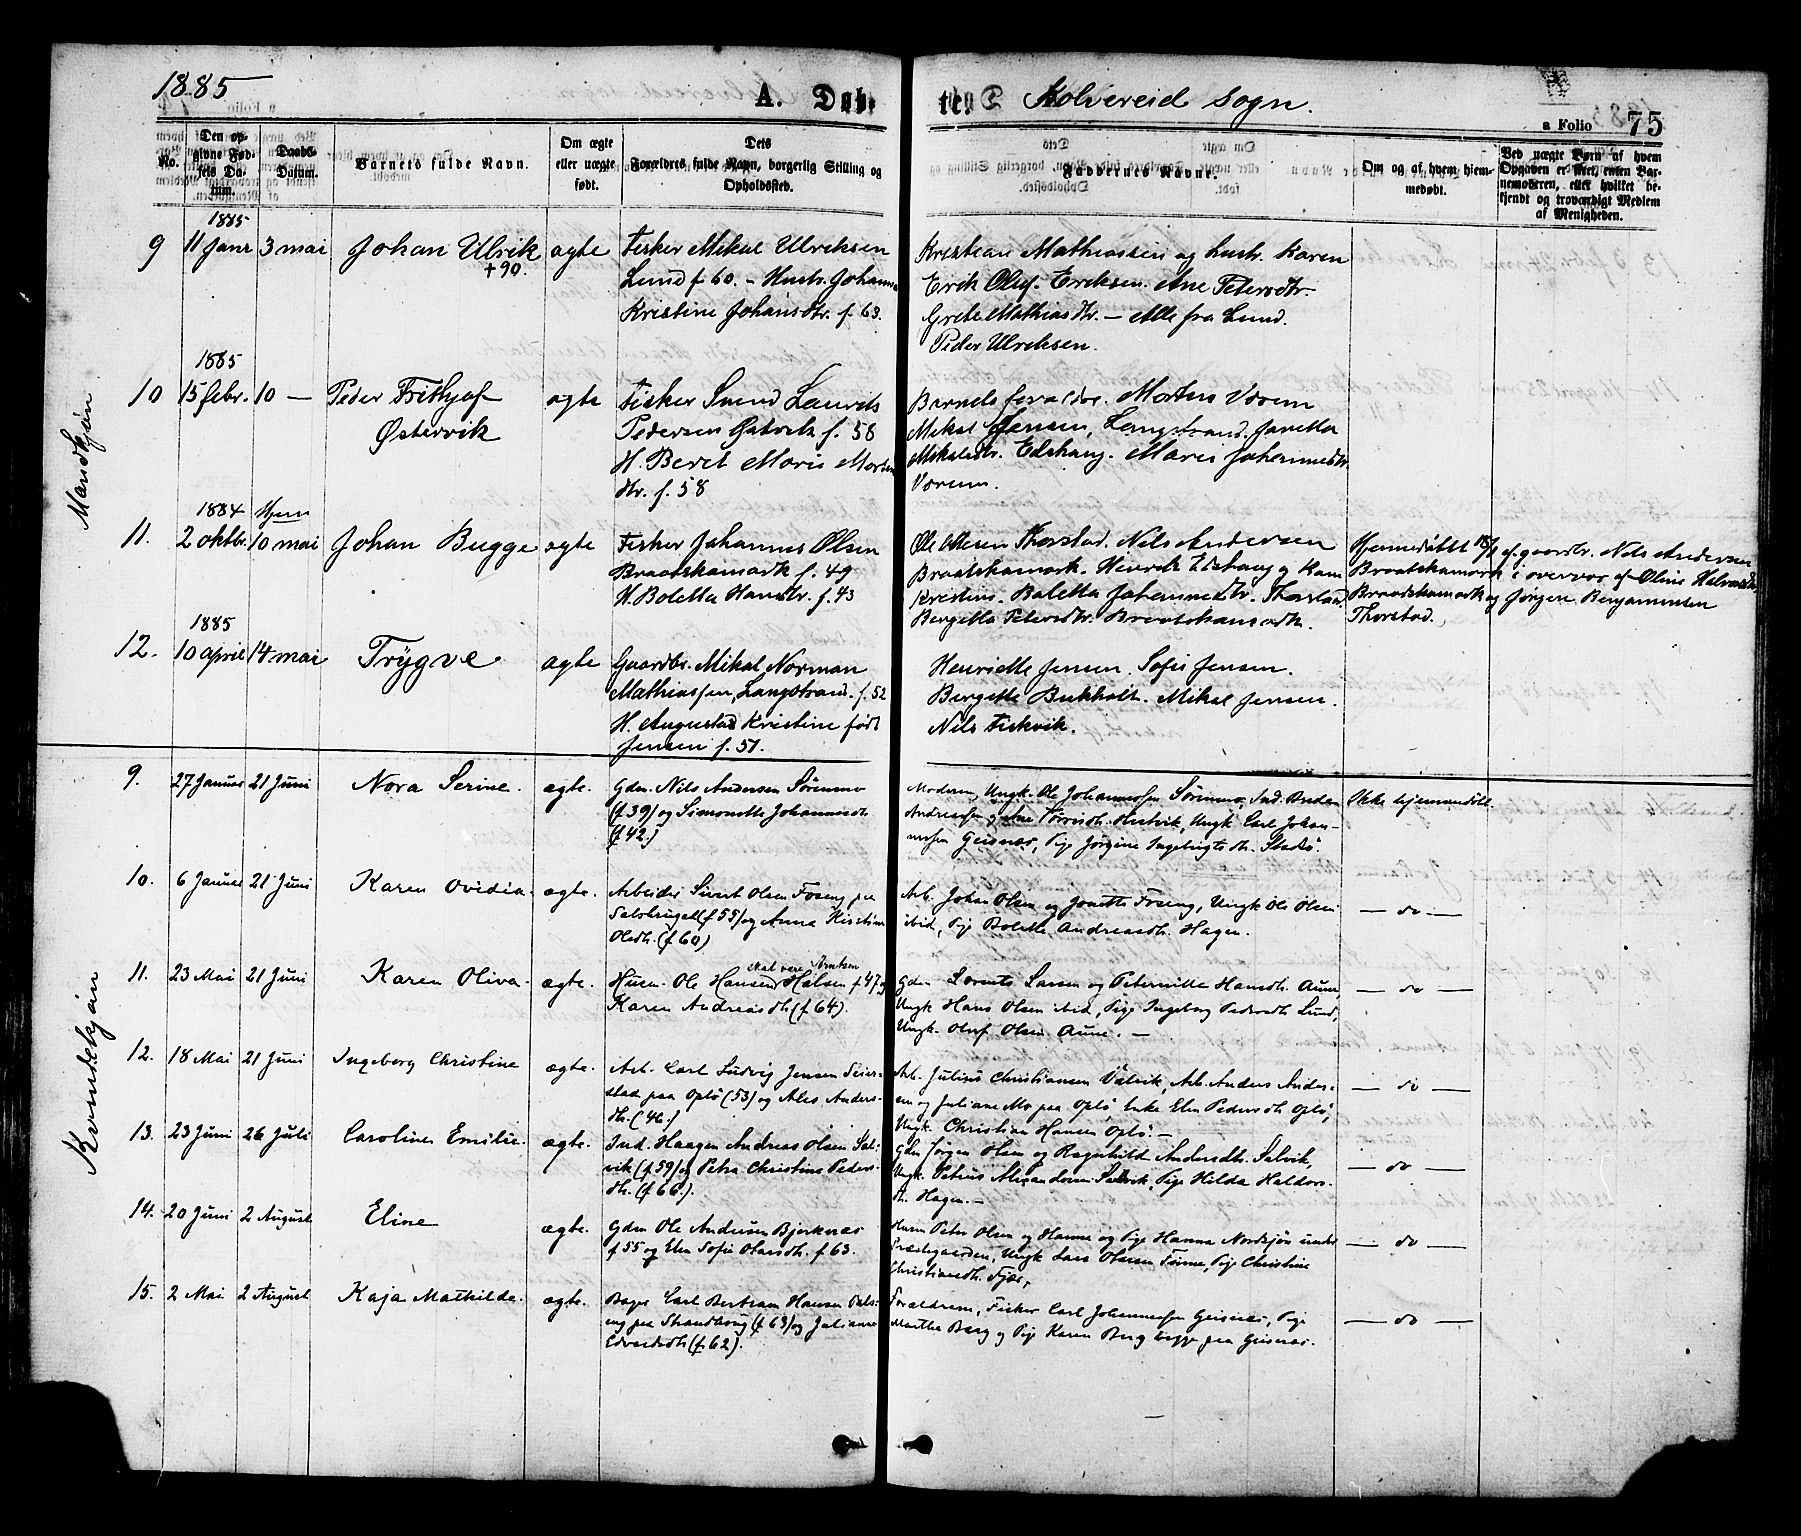 1885
A. Døb-
te.
Kolvereid Sogn.
a Folio 75
No.
Den op-
givne Fød-
sels Da-
tum.
Daabs-
Datum.
Barnets fulde Navn.
Om ægte
eller uægte
født.
Dets
Forældres fulde Navn, borgerlig Stilling og
Opholdssted.
Faddernes Navne.
Om og af hvem hjem-
medøbt.
Ved uægte Børn af hvem
Opgaven er skeet, enten Bar-
nemoderen, eller hvilket be-
kjendt og troværdigt Medlem
af Menigheden.
Mandkjøn
1885
9 11 Janr 3 mai Johan Ulrik ægte
+90.
Fisker Mikal Ulriksen
Lund f 60. - Hustr. Johanna
Kristine Johansdtr. f. 63.
Kristian Mathiassen og hustr. Karen
Erik Oluf Eriksen. Ane Petersdtr.
Grete Mathiasdtr. — Alle fra Lund.
Peder Ulriksen.
1885
10 15 febr. 10 — Peder Frithjof ægte
Østervik
Fisker Svend Laurits
Pedersen f. 58
H. Beret Maris Morten
dtr. f. 58
Barnets foraldre. Morten Værem
Mikal Jensen, Langstrand. Janetta
Mikalsdtr. Edshaug. Maris Johannesdtr.
Værem.
1884 Hjem
11. 2 oktbr. 10 mai Johan Bugge ægte
Fisker Johannes Olsen
Braatskamark f. 49
H. Boletta Hansdtr. f. 43
Ole Olesen Thorstad. Nils Andersen
Braatskamark. Henrik Edshaug og Kone
Kristine. Boletta Johannesdtr. Thorstad
Bergetta Petersdtr. Braatskamark.
Hjemmedøbt af gaardbr. Nils Andersen
Braatskamark i overvær af Oline Halvorsdtr
Braatskamark og Jørgen Benjaminsen
Thorstad.
1885
12. 10 april 14 mai Trygve ægte
Gaardbr. Mikal Norman
Mathiassen, Langstrand. f. 52
H. Augusta Kristine født
Jensen f. 51.
Henriette Jensen. Sofie Jensen.
Bergette Bukholt. Mikal Jensen.
Nils Fiskvik.
Kvindekjøn
9. 27 Januar 21 Juni Nora Serine. ægte.
Gdm. Nils Andersen Sørenmo
(f 39) og Simonette Johannesdt
(f 42)
Moderen, Ungk. Ole Johannessen Sørenmo, Ind.
Andreassen og Ane Hestvik, Ungk Carl Johan-
nessen Geisnæs, Pige Jørgine Ingebrigtsdt.
Ikke hjemmedøbt.
10. 6 Januar 21 Juni Karen Ovidia. ægte.
Arbeider Sivert Olsen Foseng paa
Salsbruget (f 55) og Anna Kirstine
Olsdt. (f 60)
Arb. Johan Olsen og Jonette Foseng, Ungk Ole Olsen
ibid, Pige Bolette Andreasdt. Hagen.
— do —
11. 23 Mai 21 Juni Karen Oliva. ægte.
skal være Arntsen
Husm. Ole Hansen Halsen f 47 og
Karen Andreasdt (f 64).
Gdm. Lorents Larsen og Peternille Hansdt. Aune,
Ungk Hans Olsen ibid, Pige Ingeborg Pedersdt Lund,
Ungk. Oluf Olsen Aune. —
— do —
12. 18 Mai 21 Juni Ingeborg Christine ægte.
Arb. Carl Ludvig Jensen Seier-
stad paa Oplø (53) og Ales Anders-
dt. (46.)
Arb. Julius Christiansen Valvik, Arb. Anders Ander-
sen og Juliane Mo paa Oplø, Enke Elen Pedersdt Oplø,
Ungk. Christian Hansen Oplø. —
— do —
13. 23 Juni 26 Juli Caroline Emilie. ægte.
Ind. Haagen Andreas Olsen Sal-
vik (f 59) og Petra Christine Peders-
dt. (f 66.).
Gdm Jørgen Olsen og Ragnhild Andersdt. Salvik,
Ungk. Petrus Alexandersen Salvik, Pige Hilda Haldors-
dt. Hagen. —
— do —
14. 20 Juni 2 August Eline ægte.
Gdm Ole Andersen Bjørknæs
f 55 og Elen Sofie Olausdt. f 63.
Husm Peter Olsen og Hanna og Pige Hanna Nordsjø under
Præstegaarden, Ungk Lars Olsen Finne, Pige Christine
Christiansdt. Fjær,
— do —
15. 2 Mai 2 August Kaja Mathilde. ægte.
Bager Carl Bertram Hansen Duls-
eng paa Strandhaug (f 63) og Julianne
Edvardsdt (f 62).
Forældrene, Fisker Carl Johannessen Geisnæs, Pige
Martha Berg og Pige Karen Berg begge paa Geisnæs.
— do —